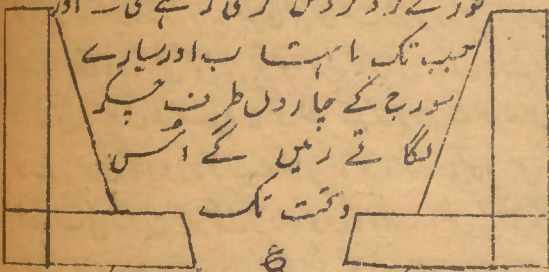 کے گرد گردش کرتی رہے گی۔ اور
جب تک ماہتاب اور سیارے
سورج کے چاروں طرف چکر
لگاتے رہیں گے اُس
وقت تک